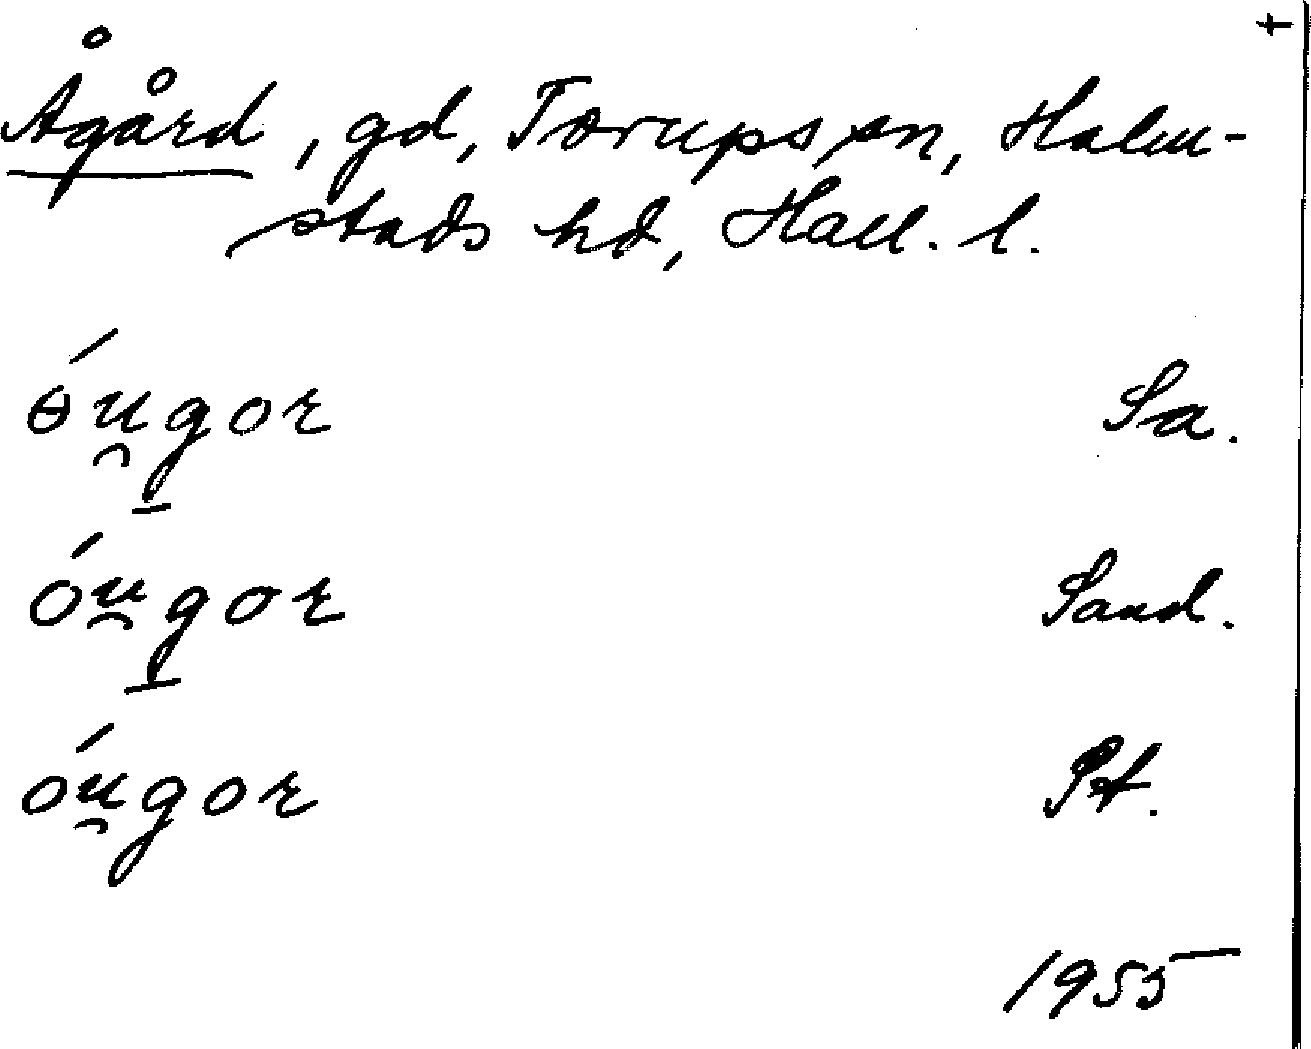 †
Ågård, gd, Torups sn, Halm-
stads hd, Hall. l.
ɵ́u̯g̱or Sa.
óu̯g̱or Sand.
óu̯gor Pt.
1955